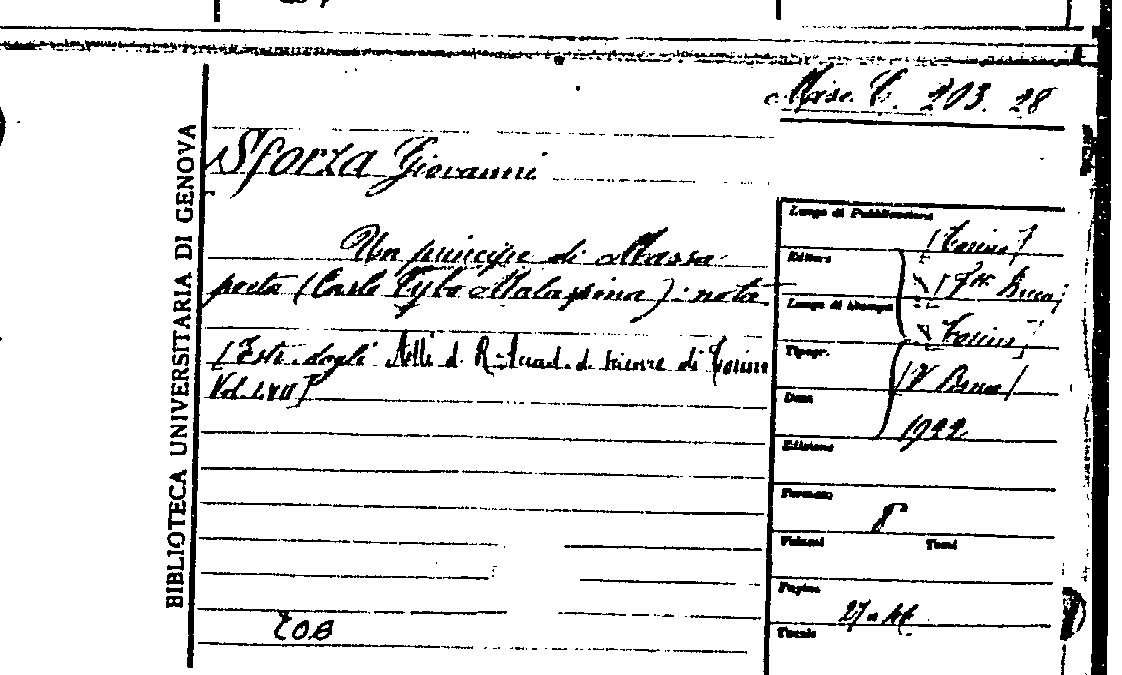 Misc. C. 203. 28
BIBLIOTECA UNIVERSITARIA DI GENOVA
Sforza Giovanni
Un principe di Massa
poeta (Carlo Cybo Malaspina): nota
[Estr. dagli Atti d. R. Accad. d. scienze di Torino
Vol. LVII]
Luogo di Pubblicazione
[Torino]
Editore
[Fr. Bocca]
Luogo di stampa
[Torino]
Tipogr.
[V. Bona]
Data
1922
Edizione
Formato
8°
Volumi Tomi
Pagine
Tavole